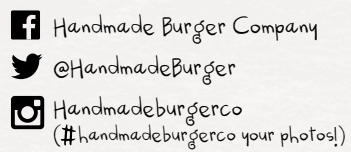 Handmade Burger Company
@HandmadeBurger
Handmadeburgerco
(#handmadeburgerco your photos!)